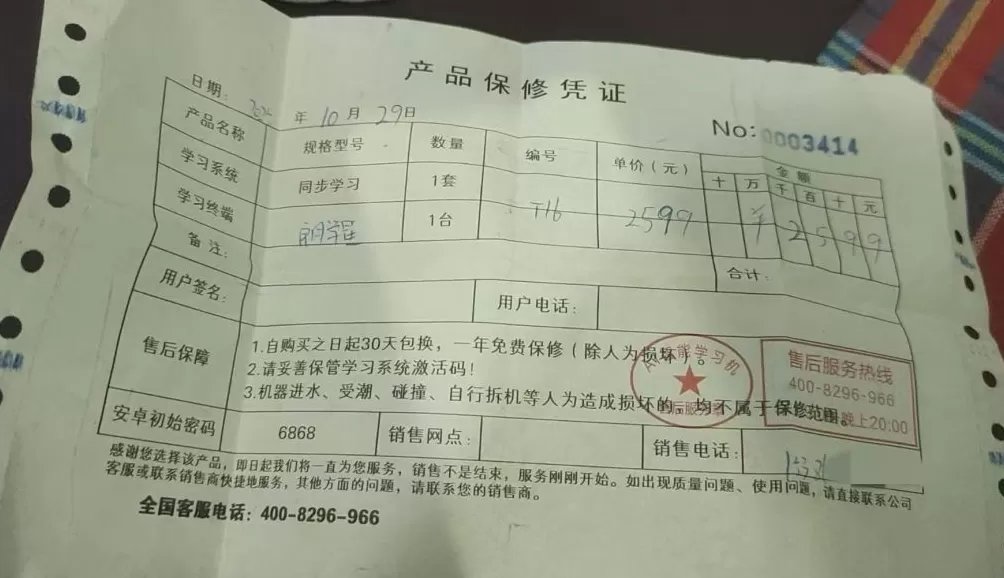 产品保修凭证
No:0003414
日期: 年10月29日
产品名称 规格型号 数量 编号 单价(元) 金额
十 万 千 百 十 元
学习系统 同步学习 1套
学习终端 1台 T16 2599 ¥ 2 5 9 9
备注: 合计:
用户签名: 用户电话:
售后保障
1.自购买之日起30天包换，一年免费保修(除人为损坏)。
2.请妥善保管学习系统激活码!
3.机器进水、受潮、碰撞、自行拆机等人为造成损坏的，均不属于保修范围。
智能学习机
售后服务
售后服务热线
400-8296-966
晚上20:00
安卓初始密码 6868 销售网点: 销售电话:
感谢您选择该产品，即日起我们将一直为您服务，销售不是结束，服务刚刚开始。如出现质量问题、使用问题，请直接联系公司
客服或联系销售商快捷地服务，其他方面的问题，请联系您的销售商。
全国客服电话: 400-8296-966